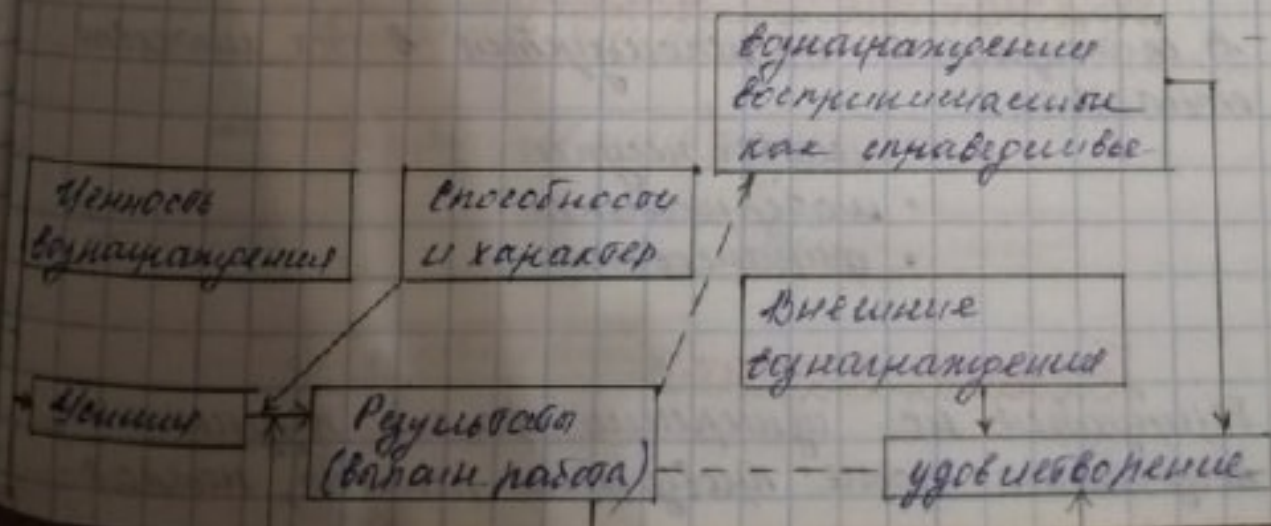 вознаграждения
воспринимаемые
как справедливые
Ценность
вознаграждения
Способности
и характер
Внешние
вознаграждения
Усилия
Результаты
(выполн. работа)
удовлетворение